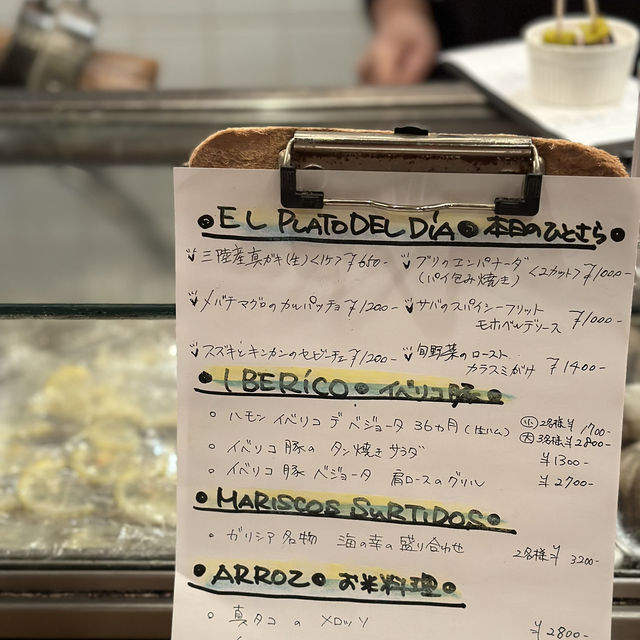 EL PLATO DEL DÍA 本日のひとさら
三陸産真ガキ(生)<1ケ> ¥650-
ブリのエンパナーダ
(パイ包み焼き) <2カット> ¥1000-
メバチマグロのカルパッチョ ¥1200-
サバのスパイシーフリット
モホベルデソース ¥1000-
スズキとキンカンのセビーチェ ¥1200-
旬野菜のロースト
カラスミがけ ¥1400-
IBERICO イベリコ豚
ハモン イベリコ デ ベジョータ 36ヵ月 (生ハム) 小 2名様 ¥1700-
大 3名様 ¥2800-
イベリコ豚の タン焼き サラダ ¥1300-
イベリコ豚 ベジョータ 肩ロースのグリル ¥2700-
MARISCOS SURTIDOS
ガリシア名物 海の幸の盛り合わせ 2名様 ¥3200-
ARROZ お米料理
真タコ の メロッソ ¥2800-